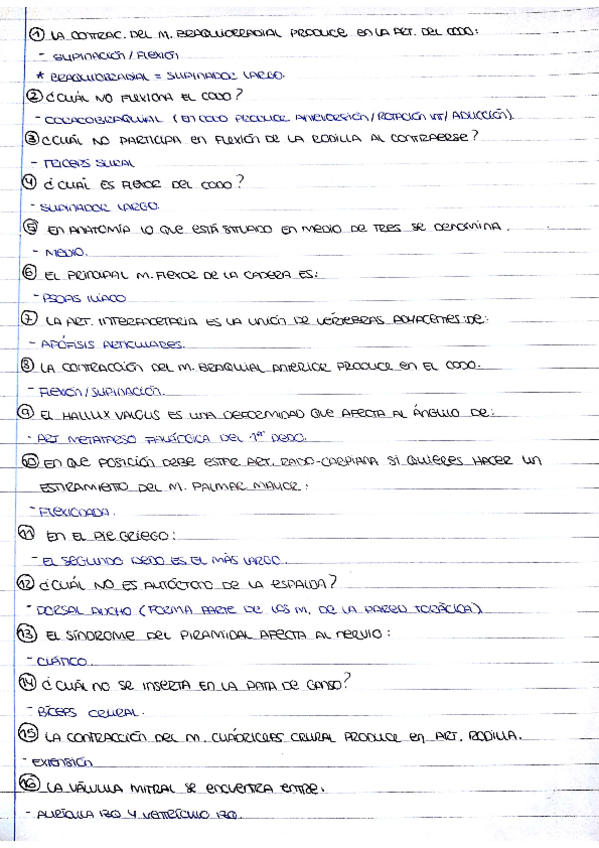 ① LA CONTRAC. DEL M. BRAQUIORRADIAL PRODUCE EN LA ART. DEL CODO:
- SUPINACIÓN / FLEXIÓN
* BRAQUIORRADIAL = SUPINADOR LARGO.
② ¿CUÁL NO FLEXIONA EL CODO?
- CORACOBRAQUIAL (EN CODO PRODUCE ANTEVERSIÓN/ROTACIÓN INT/ADUCCIÓN)
③ ¿CUÁL NO PARTICIPA EN FLEXIÓN DE LA RODILLA AL CONTRAERSE?
- TRÍCEPS SURAL
④ ¿CUÁL ES FLEXOR DEL CODO?
- SUPINADOR LARGO.
⑤ EN ANATOMÍA LO QUE ESTÁ SITUADO EN MEDIO DE TRES SE DENOMINA.
- MEDIO.
⑥ EL PRINCIPAL M. FLEXOR DE LA CADERA ES:
- PSOAS ILÍACO
⑦ LA ART. INTERFACETARIA ES LA UNIÓN DE VÉRTEBRAS ADYACENTES DE:
- APÓFISIS ARTICULARES.
⑧ LA CONTRACCIÓN DEL M. BRAQUIAL ANTERIOR PRODUCE EN EL CODO.
- FLEXIÓN/SUPINACIÓN.
⑨ EL HALLUX VALGUS ES UNA DEFORMIDAD QUE AFECTA AL ÁNGULO DE:
- ART METATARSO FALÁNGICA DEL 1er DEDO.
⑩ EN QUE POSICIÓN DEBE ESTAR ART. RADIO-CARPIANA SI QUIERES HACER UN
ESTIRAMIENTO DEL M. PALMAR MAYOR:
- FLEXIONADA.
⑪ EN EL PIE GRIEGO:
- EL SEGUNDO DEDO ES EL MÁS LARGO.
⑫ ¿CUÁL NO ES AUTÓCTONO DE LA ESPALDA?
- DORSAL ANCHO (FORMA PARTE DE LOS M. DE LA PARED TORÁCICA)
⑬ EL SÍNDROME DEL PIRAMIDAL AFECTA AL NERVIO:
- CIÁTICO.
⑭ ¿CUÁL NO SE INSERTA EN LA PATA DE GANSO?
- BÍCEPS CRURAL.
⑮ LA CONTRACCIÓN DEL M. CUÁDRICEPS CRURAL PRODUCE EN ART. RODILLA.
- EXTENSIÓN
⑯ LA VÁLVULA MITRAL SE ENCUENTRA ENTRE.
- AURÍCULA IZQ Y VENTRÍCULO IZQ.